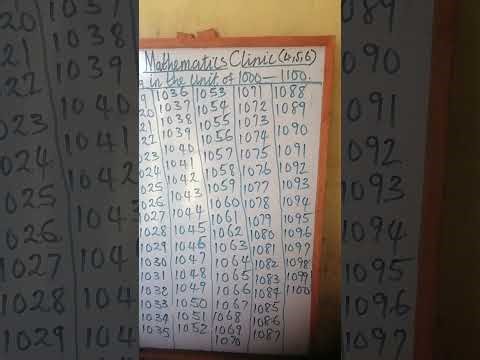 Mathematics Clinic (4,5,6)
in the unit of 1000 — 1100.
9
20
21
22
023
024
025
026
1027
1028
1029
1030
1031
1032
1033
1034
1035
1036
1037
1038
1039
1040
1041
1042
1043
1044
1045
1046
1047
1048
1049
1050
1051
1052
1053
1054
1055
1056
1057
1058
1059
1060
1061
1062
1063
1064
1065
1066
1067
1068
1069
1070
1071
1072
1073
1074
1075
1076
1077
1078
1079
1080
1081
1082
1083
1084
1085
1086
1087
1088
1089
1090
1091
1092
1093
1094
1095
1096
1097
1098
1099
1100